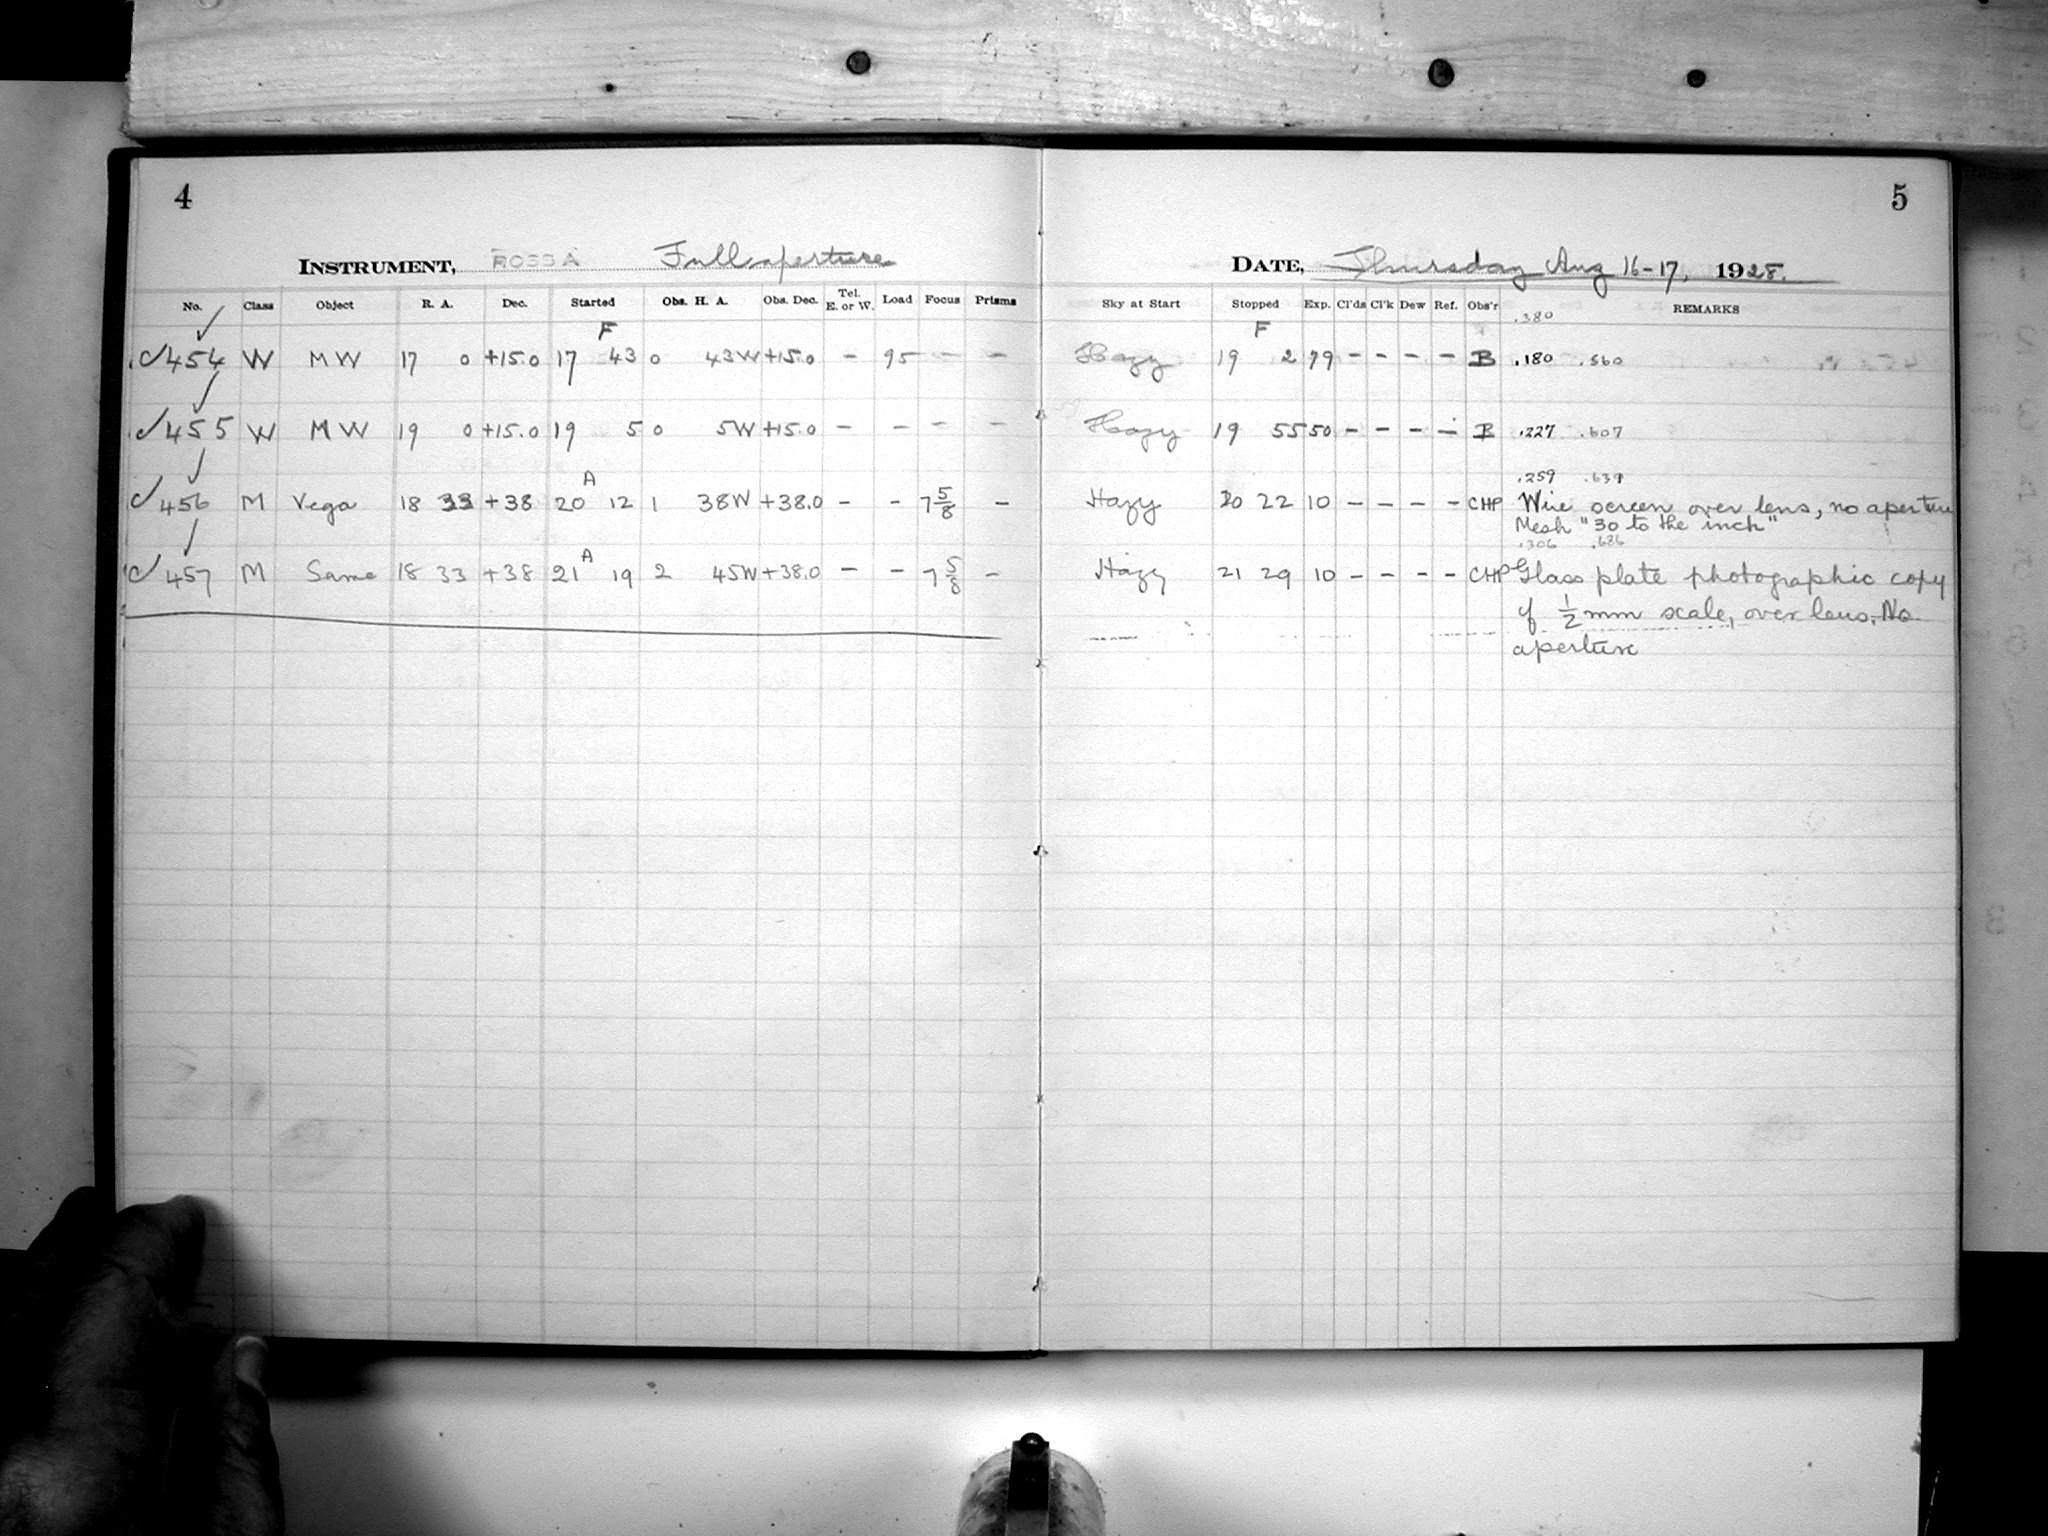 4
5
INSTRUMENT, ROSS A Full aperture
DATE, Thursday Aug 16-17, 1928.
No. Class Object R. A. Dec. Started Obs. H. A. Obs. Dec. Tel. E. or W. Load Focus Prisms Sky at Start Stopped Exp. Cl'ds Cl'k Dew Ref. Obs'r REMARKS
.380
F F
454 W MW 17 0 +15.0 17 43 0 43W +15.0 - 95 - - Hazy 19 2 79 - - - - B .180 .560
455 W MW 19 0 +15.0 19 5 0 5W +15.0 - - - - Hazy 19 55 50 - - - - B .227 .607
A .259 .639
456 M Vega 18 33 +38 20 12 1 38W +38.0 - - 7 5/8 - Hazy 20 22 10 - - - - CHP Wire screen over lens, no aperture
Mesh "30 to the inch"
A .306 .686
457 M Same 18 33 +38 21 19 2 45W +38.0 - - 7 5/8 - Hazy 21 29 10 - - - - CHP Glass plate photographic copy
of 1/2 mm scale, over lens, No
aperture